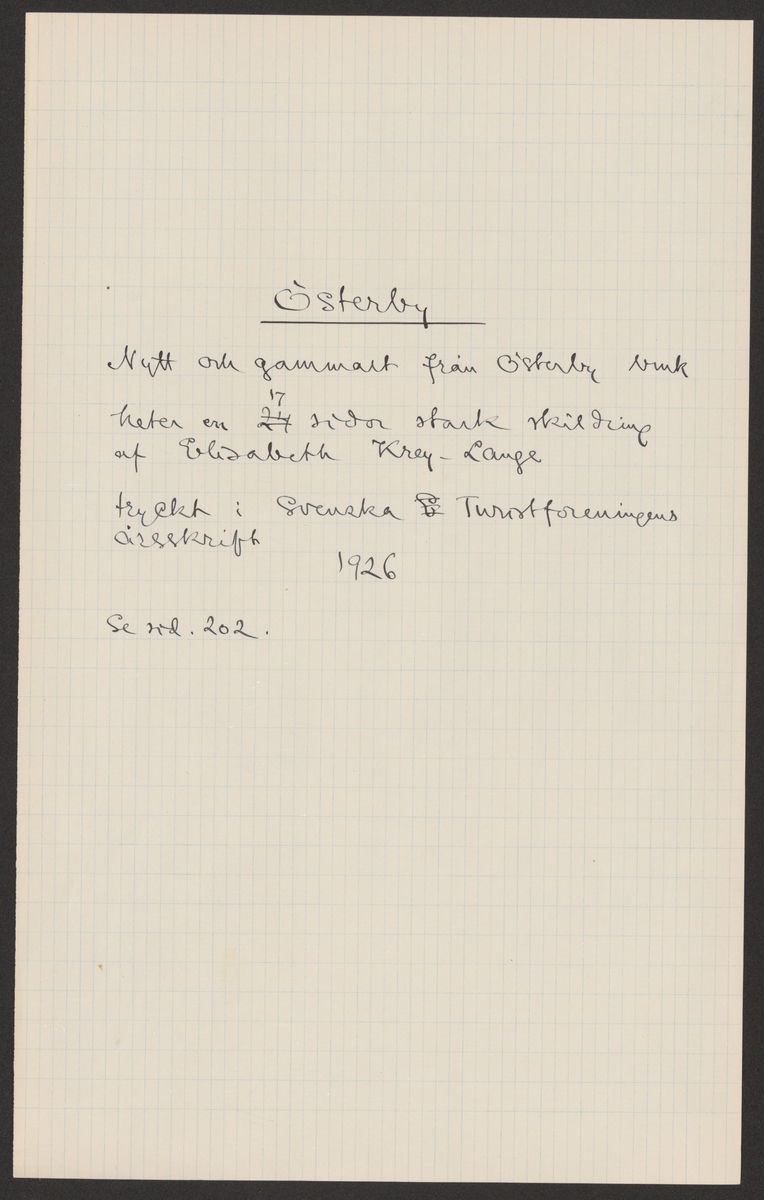 Österby
Nytt och gammalt från Österby bruk
heter en 17 sidor stark skildring
af Elisabeth Krey-Lange
tryckt i Svenska Turistföreningens
årsskrift
1926
Se sid. 202.